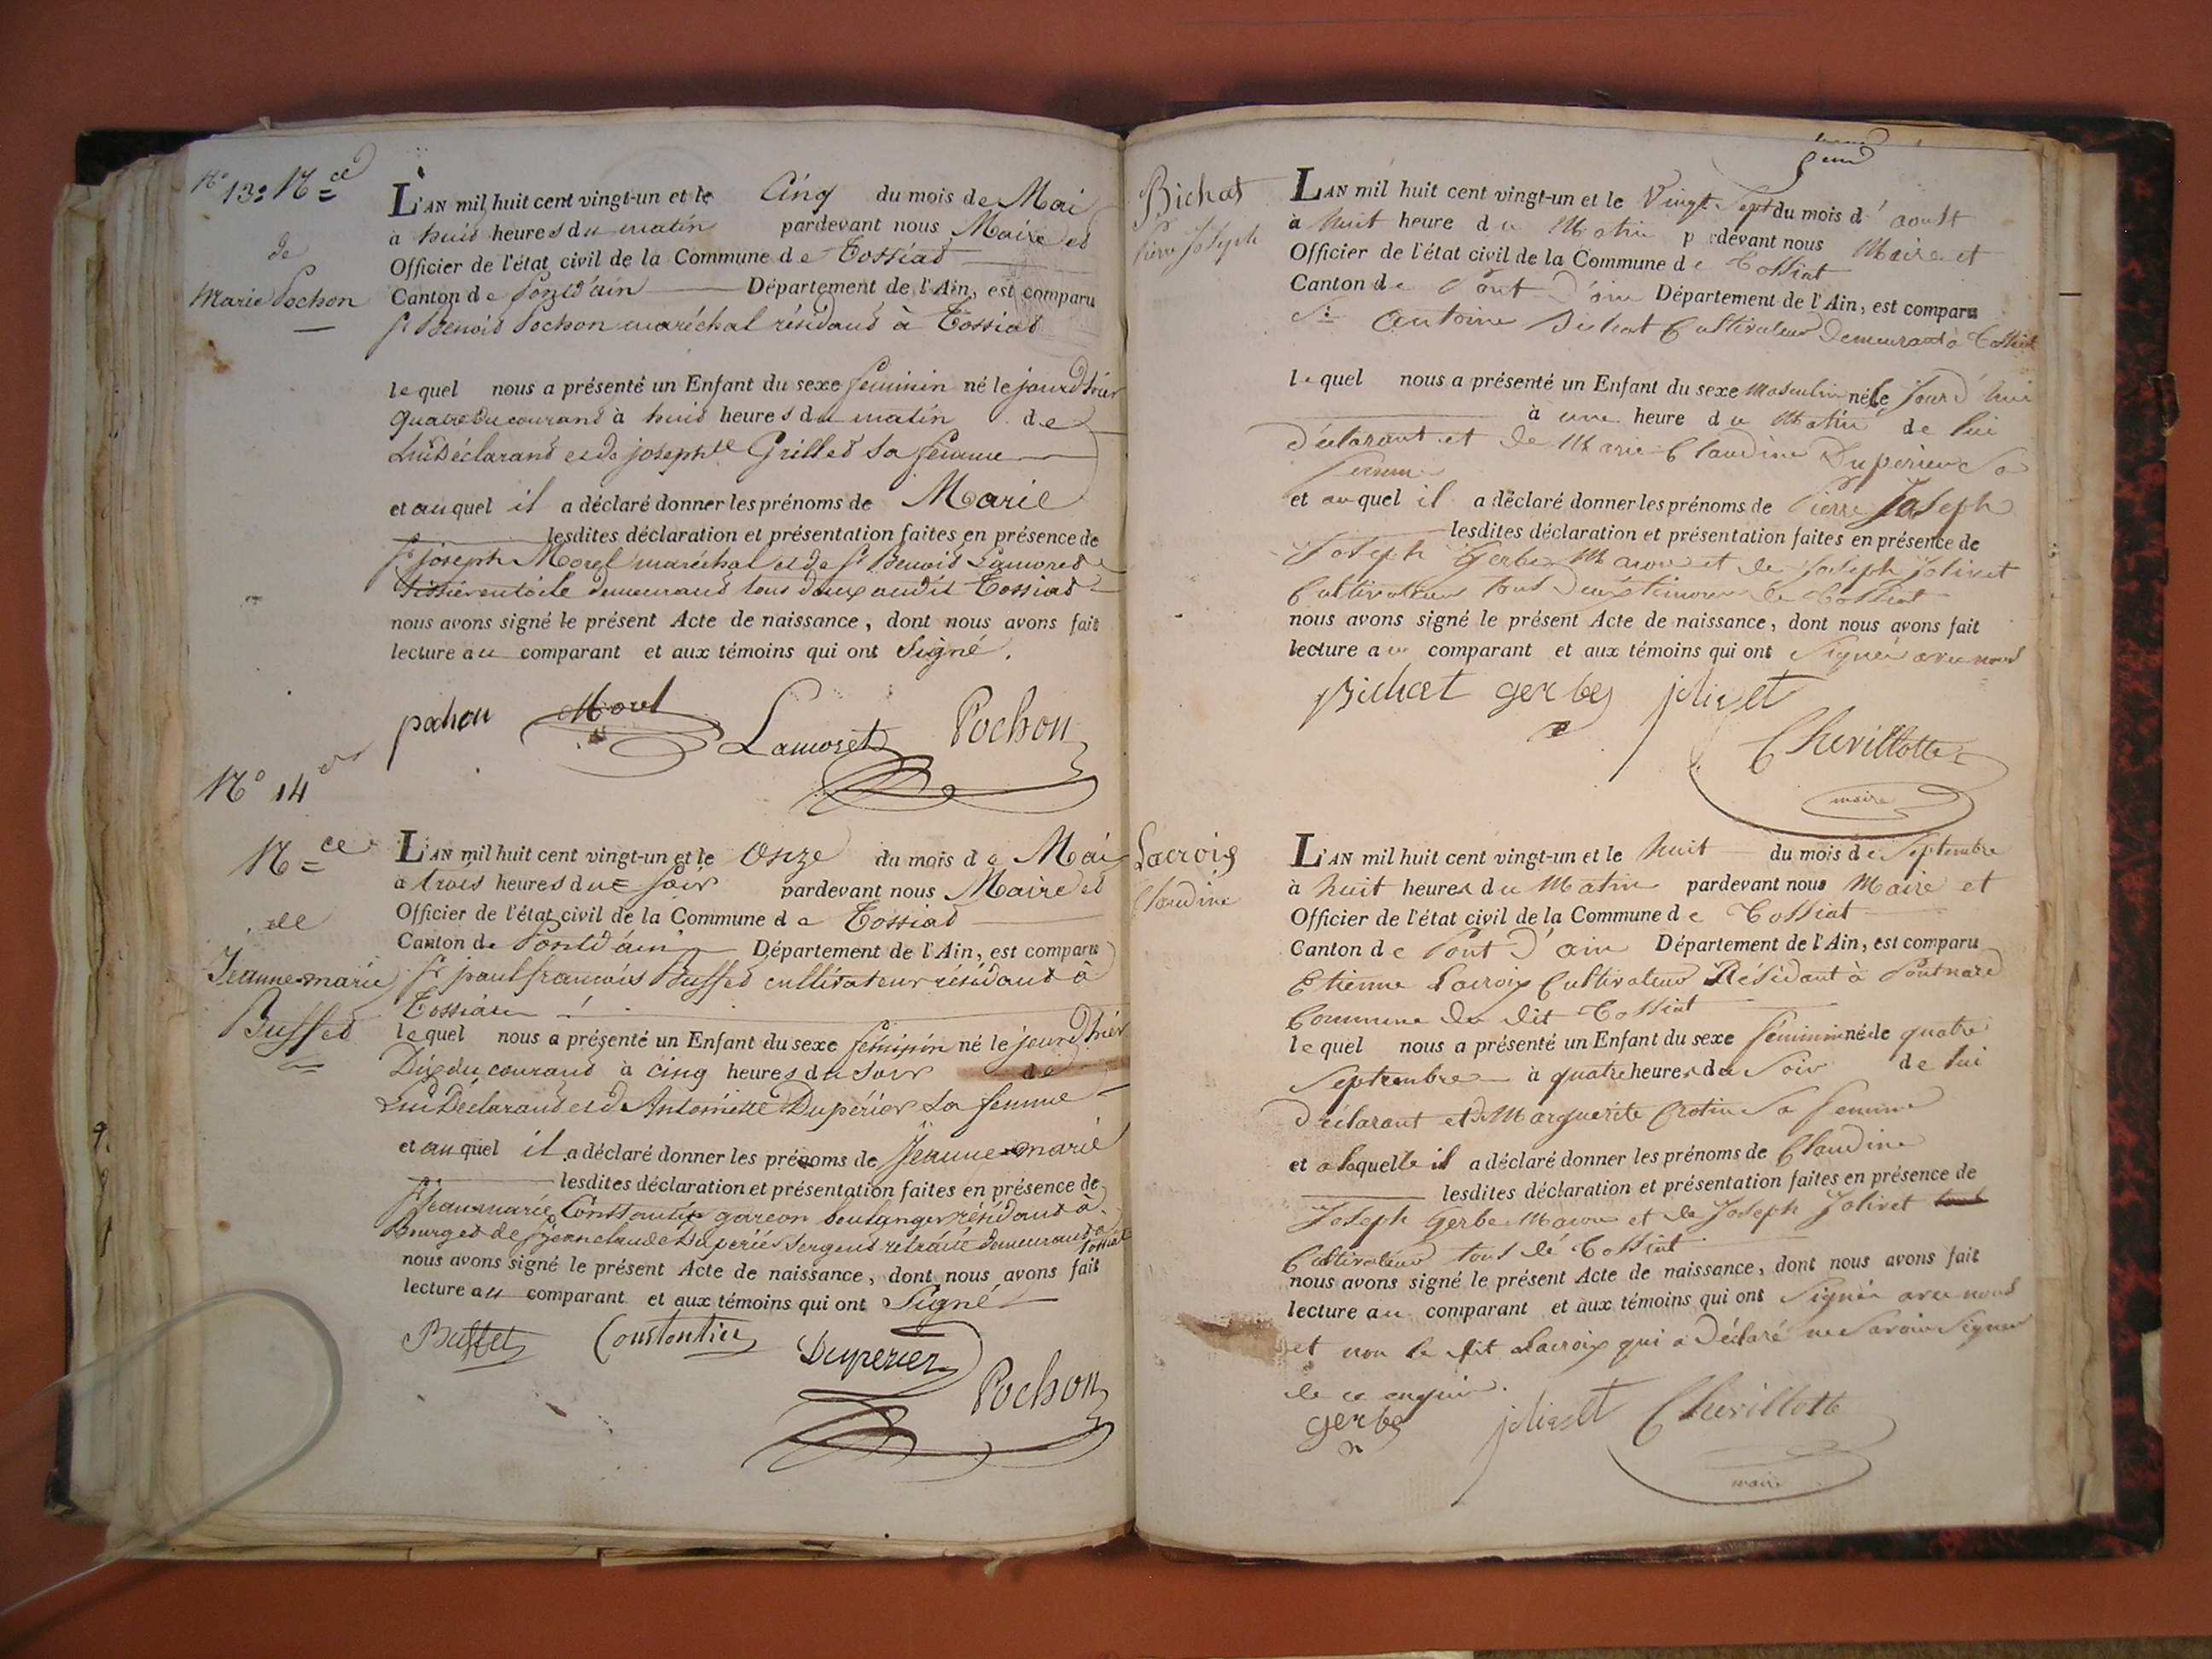 N° 13. N=ce
de
Marie Pochon
L'AN mil huit cent vingt-un et le Cinq du mois de Mai
à huit heures du matin pardevant nous Maire et
Officier de l'état civil de la Commune de Tossiat
Canton de Pont d'ain Département de l'Ain, est comparu
Sr Benoit Pochon maréchal résidant à Tossiat
lequel nous a présenté un Enfant du sexe feminin né le jourd'hier
quatre du courant à huit heures du matin de
Lui Déclarant et de josephte Grillet sa femme
et auquel il a déclaré donner les prénoms de Marie
lesdites déclaration et présentation faites en présence de
Sr joseph Morel maréchal et de Sr Benoit Lamoret
tissier en toile demeurant tous deux audit Tossiat
nous avons signé le présent Acte de naissance, dont nous avons fait
lecture au comparant et aux témoins qui ont Signé.
pochon Morel Lamoret Pochon
N° 14
N=ce
de
Jeanne-marie
Buffet
L'AN mil huit cent vingt-un et le Onze du mois de Mai
à trois heures du soir pardevant nous Maire et
Officier de l'état civil de la Commune de Tossiat
Canton de Pont d'ain Département de l'Ain, est comparu
Sr paul francois Buffet cultivateur résidant à
Tossiat
lequel nous a présenté un Enfant du sexe féminin né le jourd'hier
Dix du courant à cinq heures du soir de
Lui Déclarant et d'Antoinette Dupérier sa femme
et auquel il a déclaré donner les prénoms de Jeanne-marie
lesdites déclaration et présentation faites en présence de
Sr jean-marie Constantin garcon boulanger résidant à
Bourg et de Sr jean claude Duperier Sergent retraité demeurant à Tossiat
nous avons signé le présent Acte de naissance, dont nous avons fait
lecture au comparant et aux témoins qui ont Signé
Buffet Constantin Duperier
Pochon
Bichat
Pierre Joseph
L'AN mil huit cent vingt-un et le Vingt Sept du mois d'aoust
à huit heure du Matin pardevant nous Maire et
Officier de l'état civil de la Commune de Tossiat
Canton de Pont D'ain Département de l'Ain, est comparu
Sr Antoine Bichat Cultivateur Demeurant à Tossiat
lequel nous a présenté un Enfant du sexe Masculin né le Jourd'hui
à une heure du Matin de lui
déclarant et de Marie Claudine Duperier Sa
femme
et auquel il a déclaré donner les prénoms de Pierre Joseph
lesdites déclaration et présentation faites en présence de
Joseph Gerbe Macon et de Joseph Jolivet
Cultivateur tous Deux témoins de Tossiat
nous avons signé le présent Acte de naissance, dont nous avons fait
lecture au comparant et aux témoins qui ont Signés avec nous
Bichat gerbe jolivet
Chevillotte
maire
Lacroix
Claudine
L'AN mil huit cent vingt-un et le huit du mois de Septembre
à huit heures du Matin pardevant nous Maire et
Officier de l'état civil de la Commune de Tossiat
Canton de Pont D'ain Département de l'Ain, est comparu
Etienne Lacroix Cultivateur Résidant à
Commune du dit Tossiat
lequel nous a présenté un Enfant du sexe féminin né le quatre
Septembre à quatre heures du Soir de lui
Déclarant et de Marguerite Crotin Sa femme
et a laquelle il a déclaré donner les prénoms de Claudine
lesdites déclaration et présentation faites en présence de
Joseph Gerbe Macon et de Joseph Jolivet
Cultivateur tous de Tossiat
nous avons signé le présent Acte de naissance, dont nous avons fait
lecture au comparant et aux témoins qui ont Signés avec nous
et non le dit Lacroix qui a Déclaré ne Savoir Signer
de ce enquis.
gerbe jolivet Chevillotte
maire